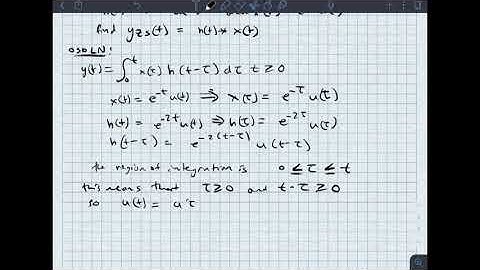 find y_zs(t) = h(t) * x(t)
SOLN:
y(t) = ∫₀ᵗ x(τ) h(t-τ) dτ t ≥ 0
x(t) = e^{-t} u(t) ⇒ x(τ) = e^{-τ} u(τ)
h(t) = e^{-2t} u(t) ⇒ h(τ) = e^{-2τ} u(τ)
h(t-τ) = e^{-2(t-τ)} u(t-τ)
the region of integration is 0 ≤ τ ≤ t
this means that τ ≥ 0 and t-τ ≥ 0
so u(t) = u τ